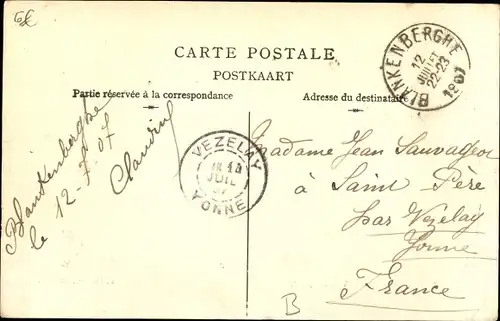 6£
CARTE POSTALE
POSTKAART
Partie réservée à la correspondance
Adresse du destinataire
BLANKENBERGHE
12
JUILLET
22-23
1907
VEZELAY
JUIL
YONNE
Blankenberghe
le 12-7-07
Madame Jean Sauvageot
à Saint Père
par Vezelay
Yonne
France
B